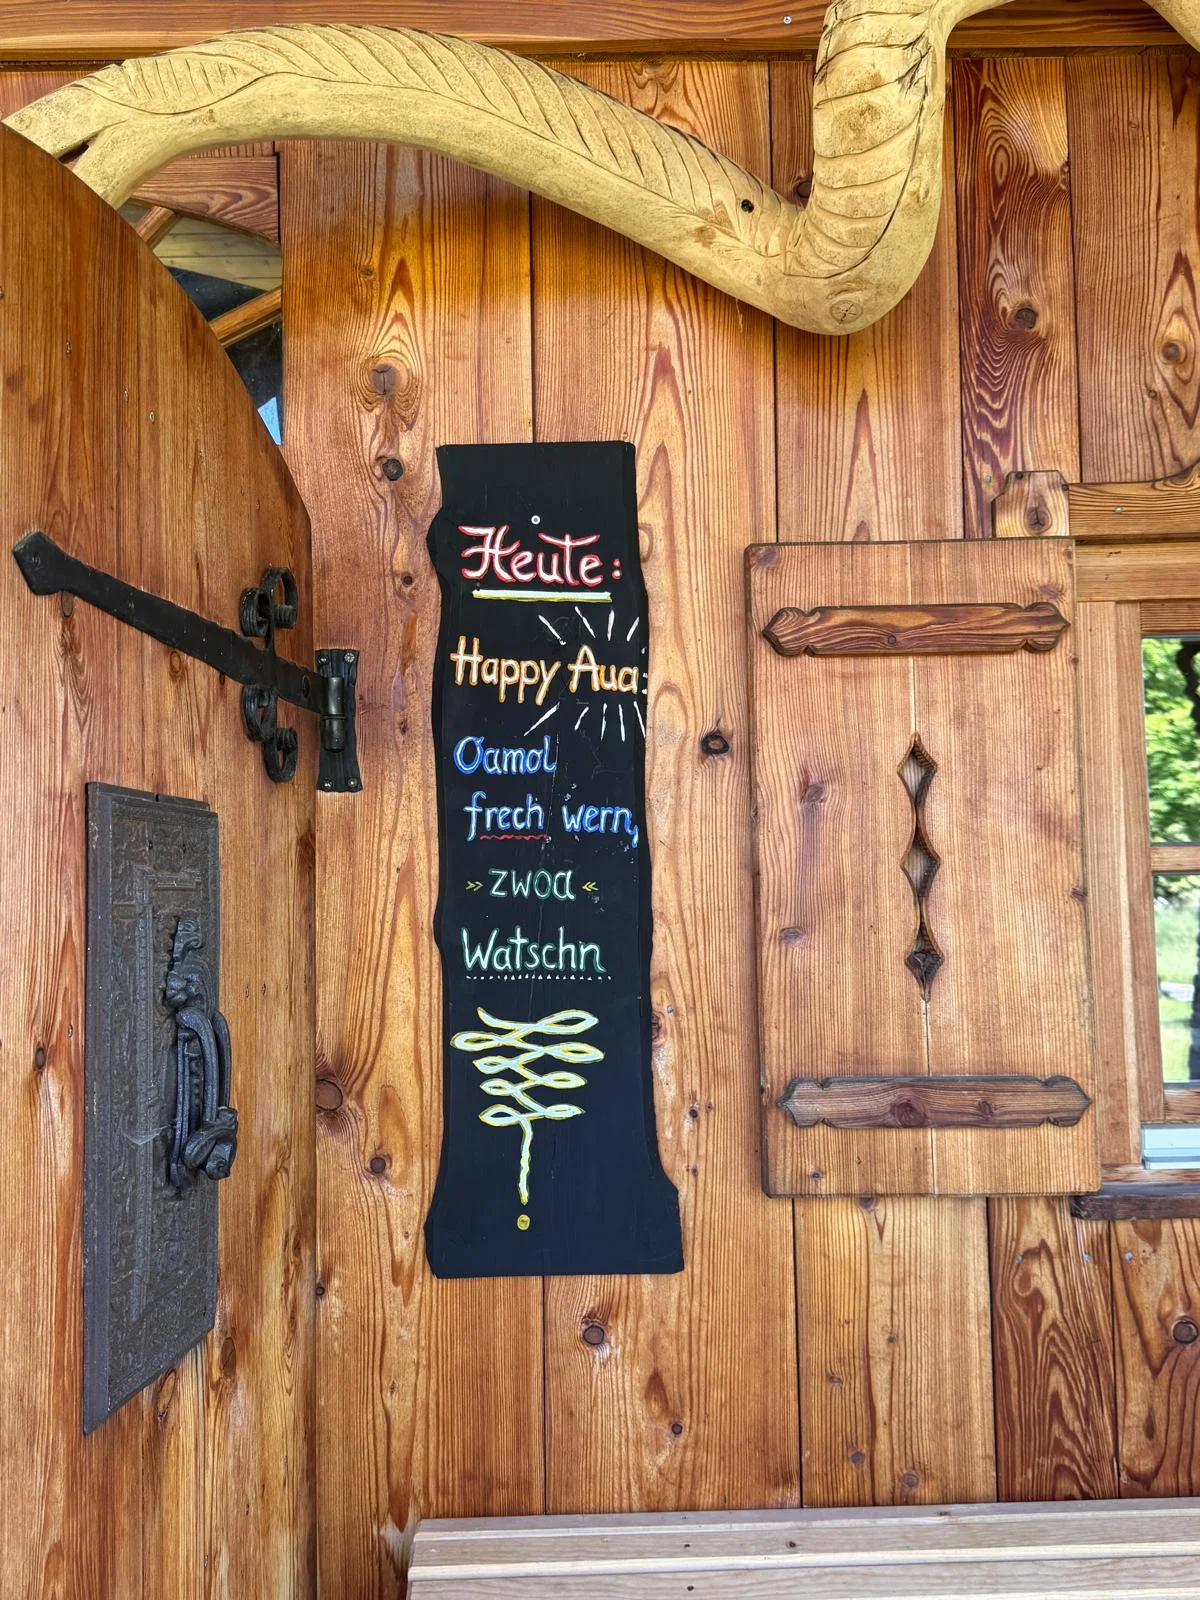 Heute:
Happy Aua:
Oamol
frech wern,
» zwoa «
Watschn